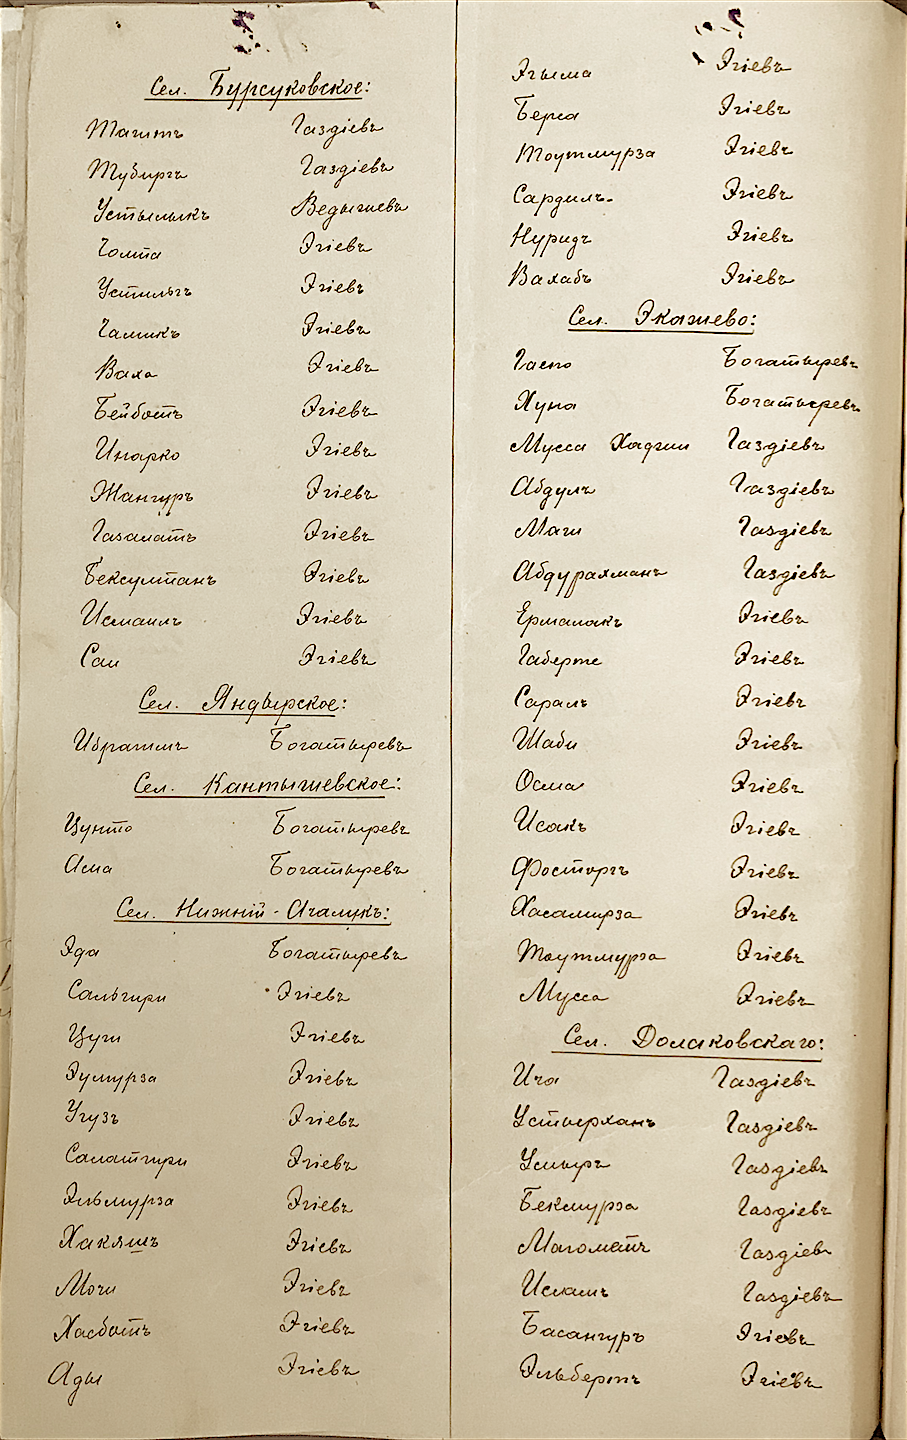 Сел. Бурсуковское:
Магитъ Газдіевъ
Тубиргъ Газдіевъ
Устылыкъ Ведыгиевъ
Гомта Эгіевъ
Устильгъ Эгіевъ
Гамикъ Эгіевъ
Ваха Эгіевъ
Бейботъ Эгіевъ
Инарко Эгіевъ
Жангуръ Эгіевъ
Газалатъ Эгіевъ
Бексултанъ Эгіевъ
Исмаилъ Эгіевъ
Саи Эгіевъ
Сел. Яндырское:
Ибрагимъ Богатыревъ
Сел. Кантышевское:
Цунто Богатыревъ
Асма Богатыревъ
Сел. Нижній-Ачалукъ:
Эда Богатыревъ
Сальгири Эгіевъ
Цуги Эгіевъ
Зумурза Эгіевъ
Угузъ Эгіевъ
Салатгири Эгіевъ
Эльмурза Эгіевъ
Хакяшъ Эгіевъ
Мочи Эгіевъ
Хасботъ Эгіевъ
Ады Эгіевъ
Эгыма Эгіевъ
Берса Эгіевъ
Тоутмурза Эгіевъ
Сардилъ Эгіевъ
Нуридъ Эгіевъ
Вахабъ Эгіевъ
Сел. Экажево:
Гаспо Богатыревъ
Хуна Богатыревъ
Мусса Хаджи Газдіевъ
Абдулъ Газдіевъ
Маги Газдіевъ
Абдурахманъ Газдіевъ
Ермалакъ Эгіевъ
Габерте Эгіевъ
Саралъ Эгіевъ
Шаби Эгіевъ
Осма Эгіевъ
Исакъ Эгіевъ
Фосторгъ Эгіевъ
Хасамирза Эгіевъ
Тоутмурза Эгіевъ
Мусса Эгіевъ
Сел. Долаковскаго:
Ича Газдіевъ
Устырханъ Газдіевъ
Умыръ Газдіевъ
Бекмурза Газдіевъ
Магометъ Газдіевъ
Исламъ Газдіевъ
Басангуръ Эгіевъ
Эльбертъ Эгіевъ